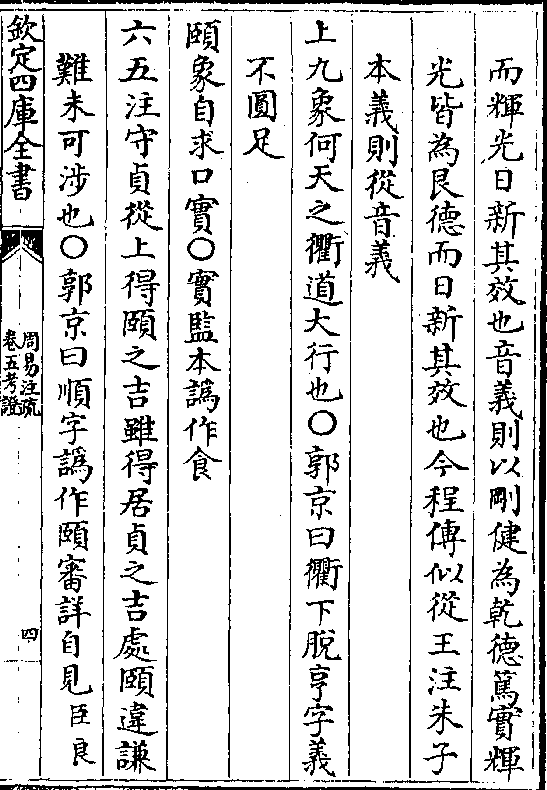 而輝光日新其效也音義則以剛健為乾德篤實輝
光皆為艮德而日新其效也今程傳似從王注朱子
本義則從音義
上九象何天之衢道大行也○郭京曰衢下脫亨字義
不圓足
頤象自求口實○實監本譌作食
六五注守貞從上得頤之吉雖得居貞之吉處頤違謙
難未可涉也○郭京曰順字譌作頤審詳自見臣良
欽定四庫全書
周易注疏
卷五考證
四